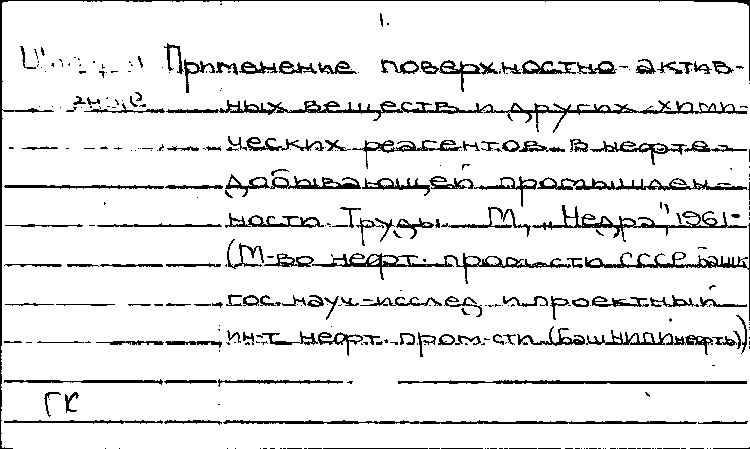 1.
Применение поверхностно-актив-
ных веществ и других хими-
ческих реагентов в нефте-
добывающей промышлен-
ности. Труды. М., „Недра", 1961-
(М-во нефт. пром-сти СССР. Башк.
гос. науч.-исслед. и проектный
ин-т нефт. пром-сти (БашНИПИнефть))
ГК